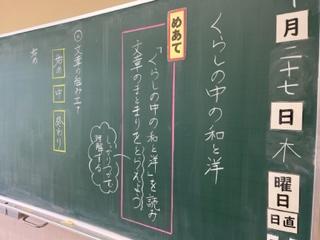 月二十七日木曜日
日直
くらしの中の和と洋
めあて
「くらしの中の和と洋」を読み
文章のまとまりをとらえよう
しっかりつかむ
理解する
文章の組み立て
初め
中
終わり